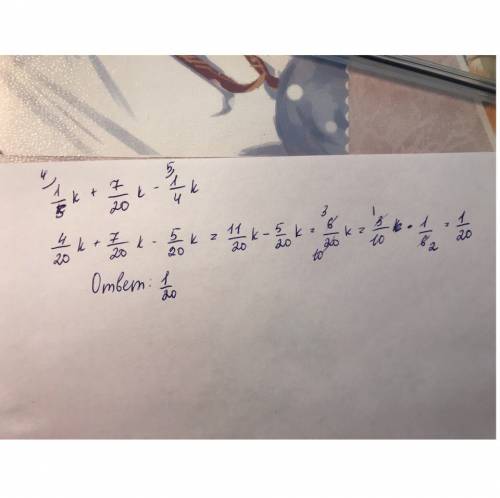 4) 5)
1/5 k + 7/20 k - 1/4 k
4/20 k + 7/20 k - 5/20 k = 11/20 k - 5/20 k = 3 6/20 10 k = 1 3/10 k · 1/6 2 = 1/20
Ответ: 1/20